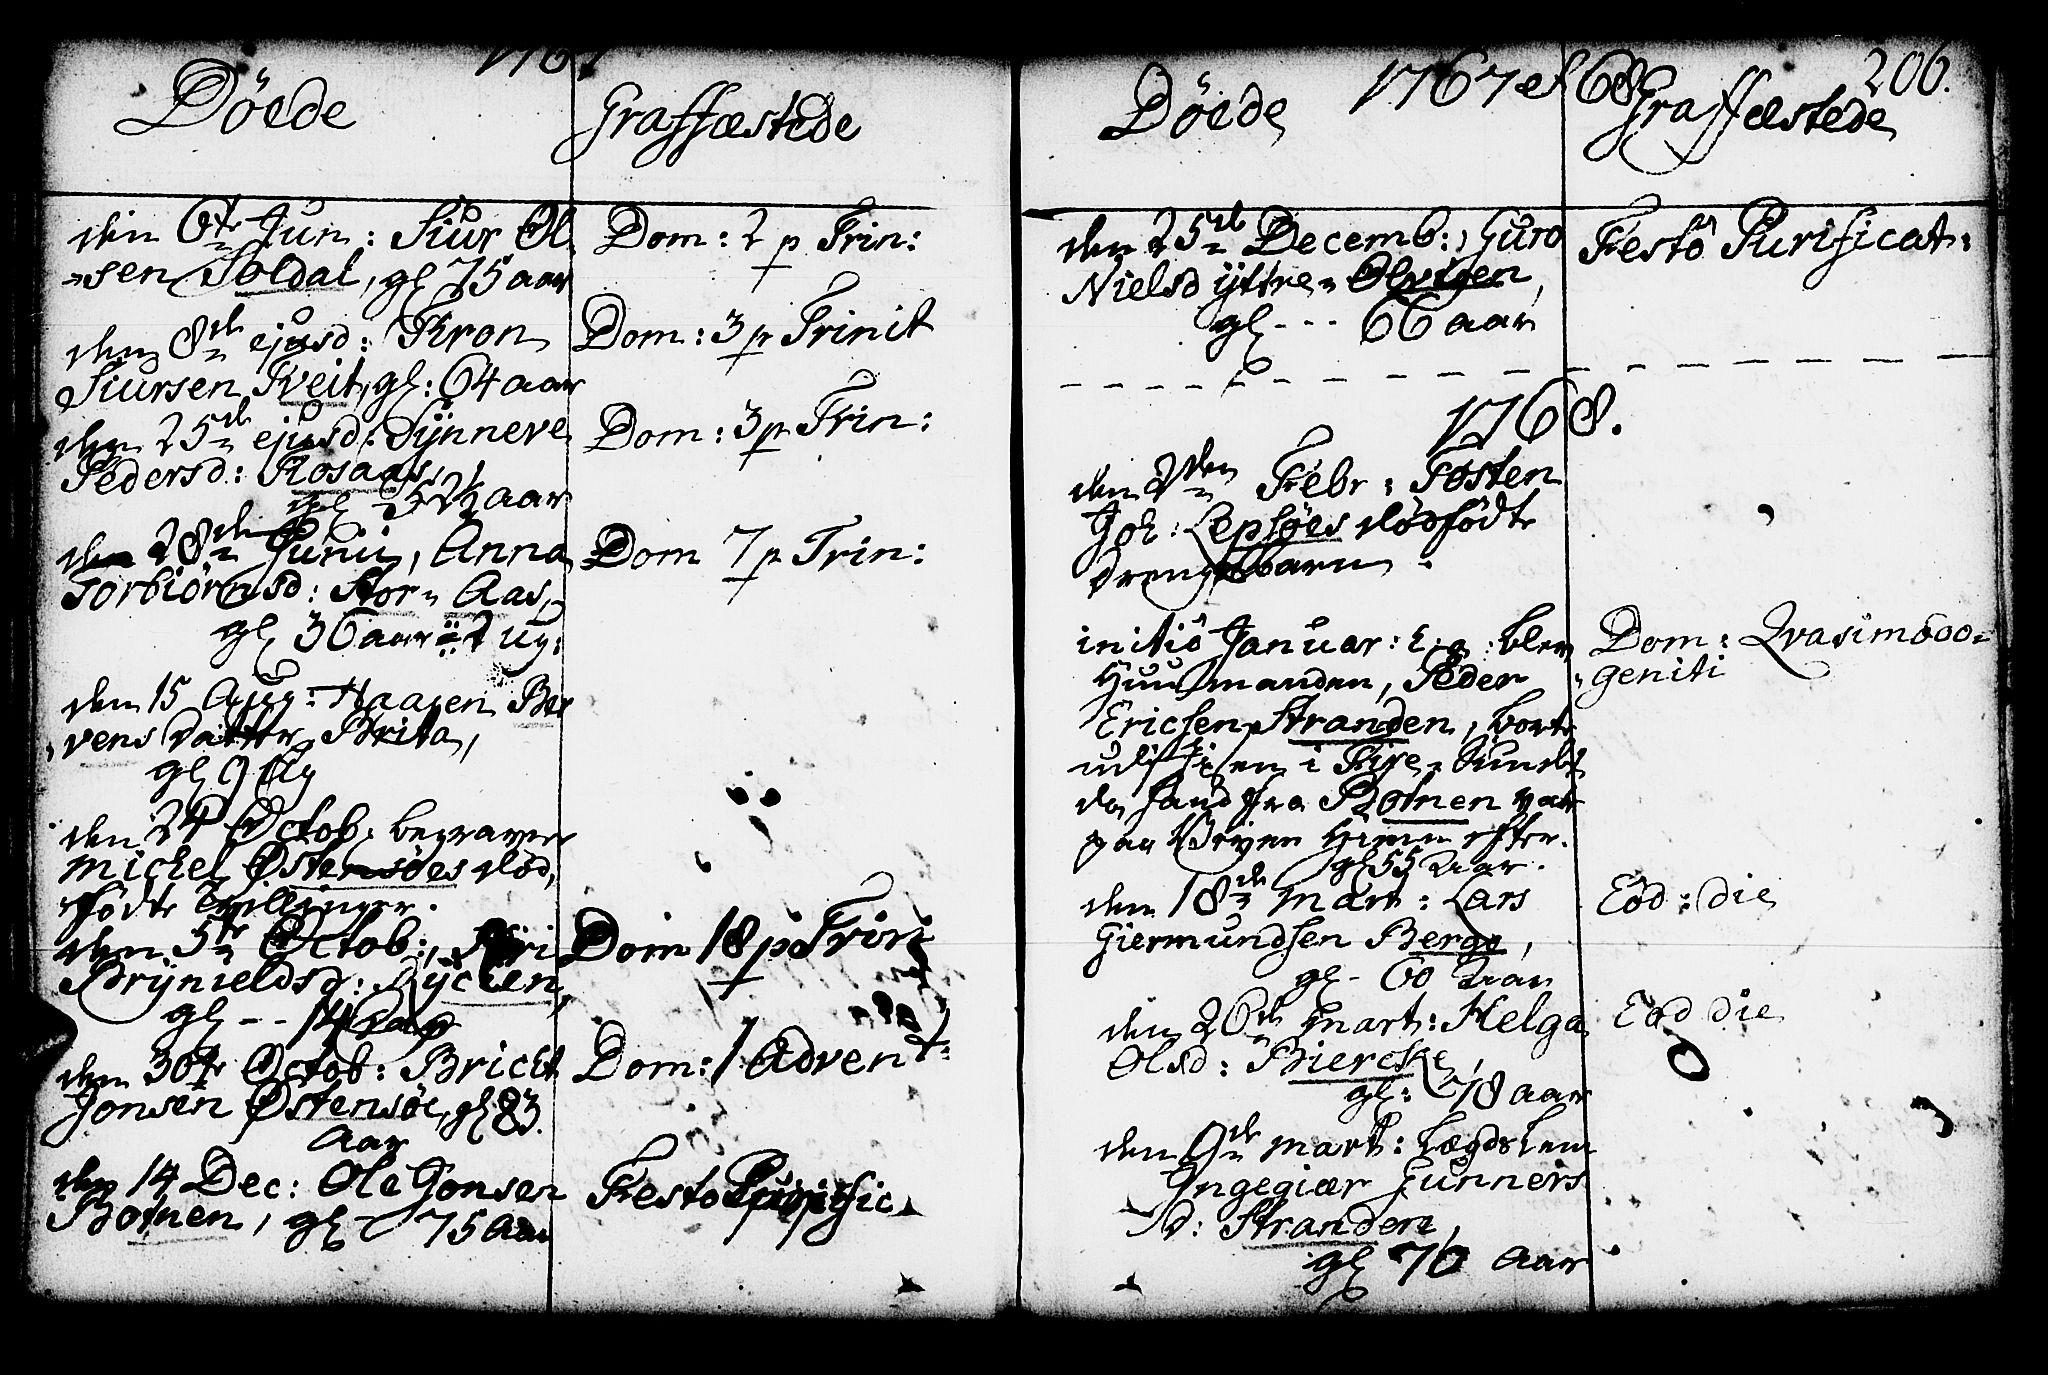 1767
Döede
Graffæstede
den 6te Jun: Siur Ol
-sen Soldal, gl 75 aar
Dom: 2 p Trin:
den 8de ejusd: Tron
Siursen Tveit, gl: 64 aar
Dom: 3 p Trinit
den 25de ejusd: Synneve
Pedersd: Rosaas,
gl 52½ aar
Dom: 3 p Trin:
den 28de Junii, Anna
Torbiörnsd: Stor= Aas,
gl 36 aar 2 ug:
Dom 7 p Trin:
den 15 Aug: Haagen Ber
vens datter Brita,
gl 9
den 24 Octob: begraven
Michel Østensøes död,
födte Tvillinger.
den 5te Octob:, Siri
Brynieldsd: Lycken,
gl -- 14 Dage
Dom 18 p Trin
den 30te Octob: Bricht
Jonsen Østensöe, gl 83
aar
Dom: 1 Advent:
den 14 Dec: Ole Jonsen
Botnen, gl - 75 Aar
Festo Purific
1767 et 68
206.
Döede
Graffæstede
den 25de Decemb:, Guro
Nielsd yttre= Alvigen,
gl --- 66 aar
Festo Purificat:
1768.
den 2den Febr: Tosten
Joh: Lepsöes dödfödte
drengebarn.
initio Januar: h: a: blev
Huusmanden, Peder
Ericsen Stranden, bort
i Fixe= Sundet
da hand fra Botnen var
paa Veyen Hiem efter.
gl 55 Aar.
Dom: Qvasimodo=
=geniti
den 18de Mart: Lars
Giermundsen Berge,
gl- 60 Aar
Eod: die
den 26de Mart: Helga
Olsd: Biercke,
gl: 78 aar
Eod die
den 9de Mart: Lægds Lem
Ingegiær Gunners
d: Stranden,
gl 76 Aar